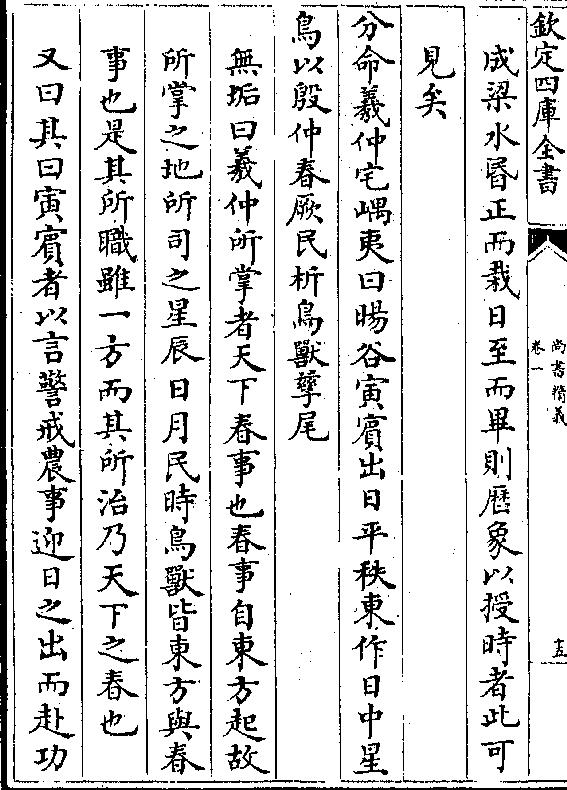 欽定四庫全書
尚書精義
卷一
十五
成梁水昬正而栽日至而畢則厯象以授時者此可
見矣
分命羲仲宅嵎夷曰暘谷寅賓出日平秩東作日中星
鳥以殷仲春厥民析鳥獸孳尾
無垢曰羲仲所掌者天下春事也春事自東方起故
所掌之地所司之星辰日月民時鳥獸皆東方與春
事也是其所職雖一方而其所治乃天下之春也
又曰其曰寅賓者以言警戒農事迎日之出而赴功